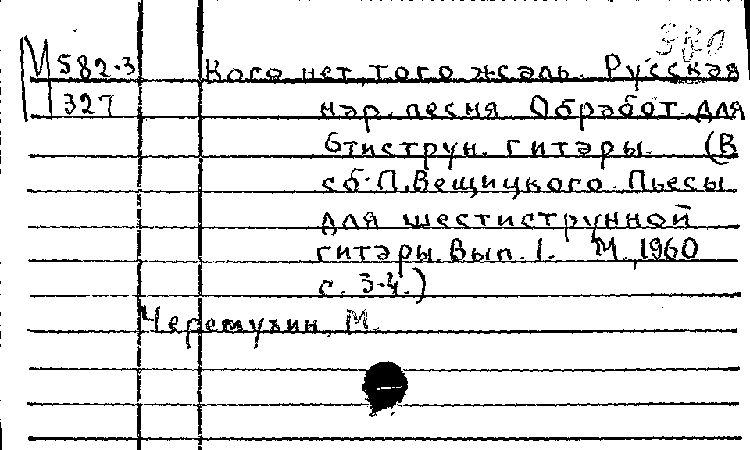 380
М 582-3 Кого нет, того жсаль. Русская
327 нар. песня Обработ. для
6тиструн. гитары. (В
сб. П. Вещицкого. Пьесы
для шестиструнной
гитары. Вып. 1. М., 1960
с. 3-4.)
Черемухин, М.